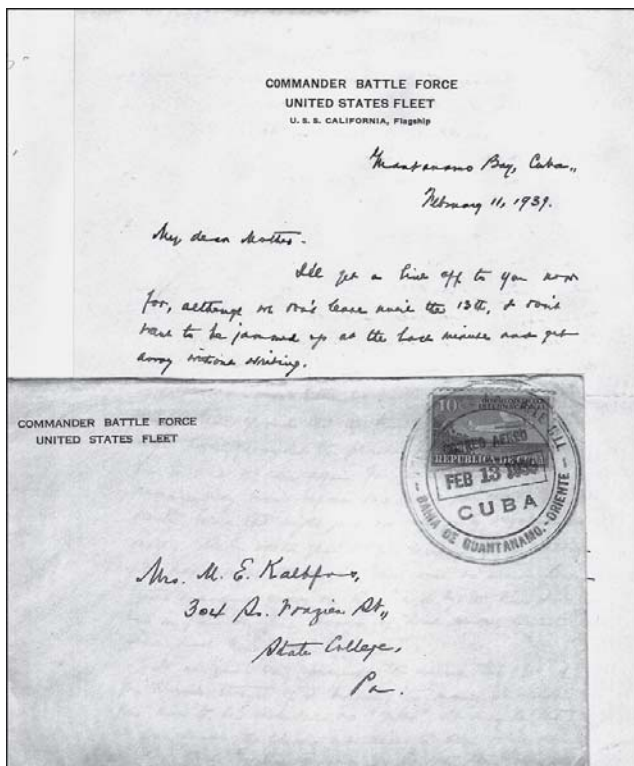 COMMANDER BATTLE FORCE
UNITED STATES FLEET
U. S. S. CALIFORNIA, Flagship
Guantanamo Bay, Cuba,
February 11, 1939.
My dear Mother.
I'll get a line off to you now
for, although we don't leave until the 13th, I don't
want to be jammed up at the last minute and get
away without writing.
COMMANDER BATTLE FORCE
UNITED STATES FLEET
10¢
INTERNACIONAL
CORREO AEREO
REPUBLICA DE CUBA
FEB 13 1939
CUBA
BAHIA DE GUANTANAMO.-ORIENTE
Mrs. M. E. Kalbfus,
304 So. Frazier St.,
State College,
Pa.